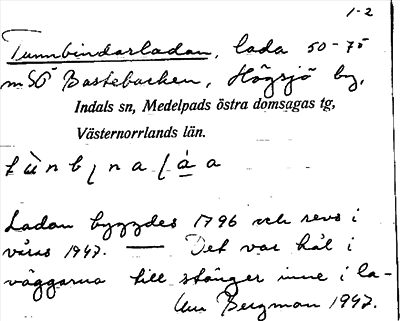 1-2
Tunnbindarladan, lada 50-75
m SO Bastebacken, Högsjö by,
Indals sn, Medelpads östra domsagas tg,
Västernorrlands län.
Ladan byggdes 1796 och revs i
våras 1947. — Det var hål i
väggarna till stänger inne i la-
Bergman 1947.